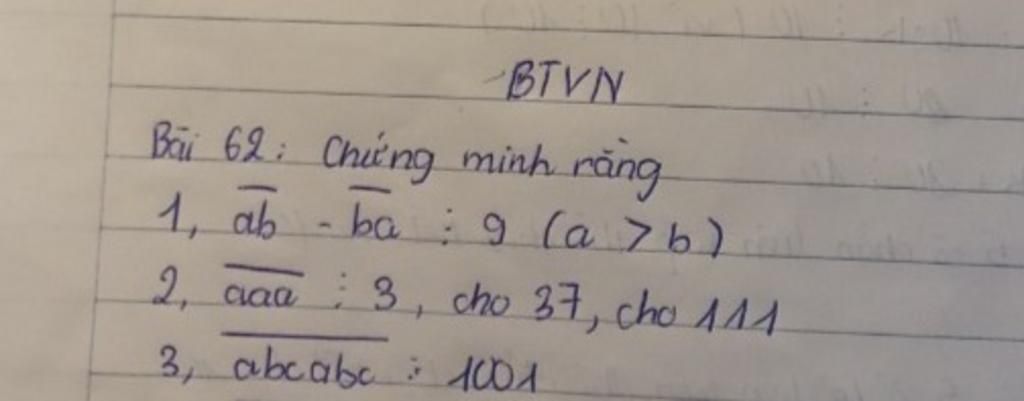 BTVN
Bài 62: Chứng minh rằng
1, \overline{ab} - \overline{ba} ⋮ 9 (a > b)
2, \overline{aaa} ⋮ 3, cho 37, cho 111
3, \overline{abcabc} ⋮ 1001